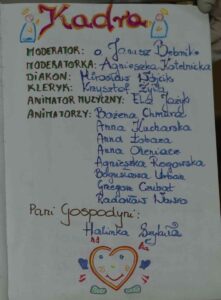 Kadra
MODERATOR: o. Janusz
MODERATORKA: Agnieszka Kotelnicka
DIAKON: Mirosław Wójcik
KLERYK: Krzysztof Zyna
ANIMATOR MUZYCZNY: Ela
ANIMATORZY: Bożena Chmura
Anna Kucharska
Anna Łobaza
Anna
Agnieszka Rogowska
Bogusława Urban
Grzegorz Czubat
Radosław Nawro
Pani Gospodyni:
Halinka